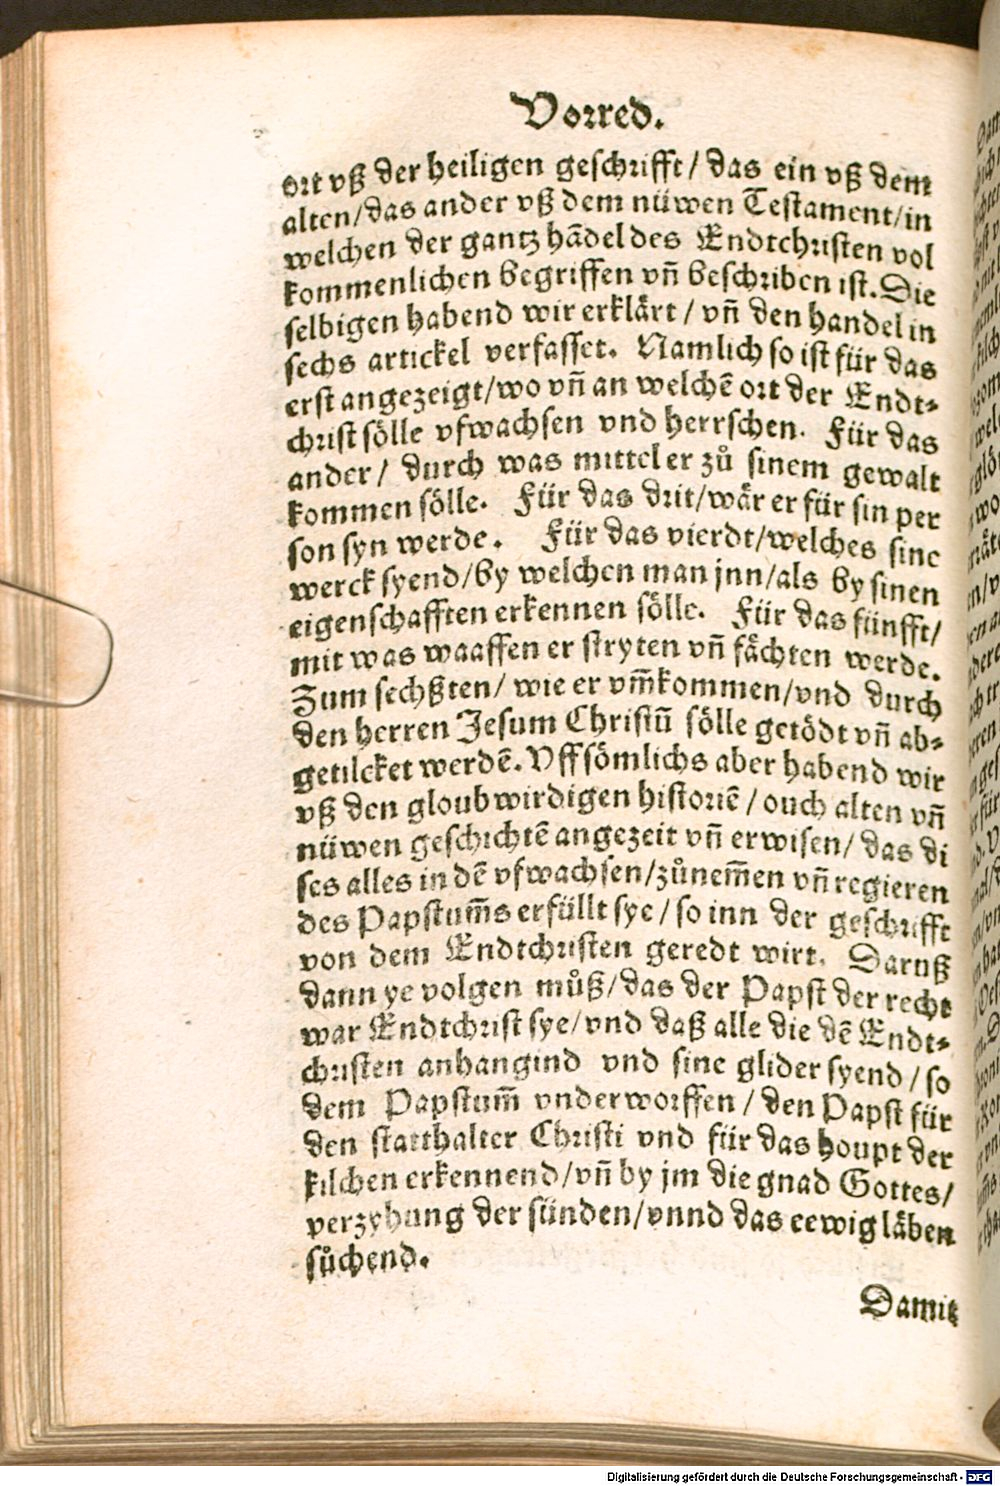 Vorred.
ort vß der heiligen geschrifft / das ein vß dem
alten/das ander vß dem nüwen Testament/in
welchen der gantz hãdel des Endtchristen vol
kommenlichen begriffen vñ beschriben ist. Die
selbigen habend wir erklärt / vñ den handel in
sechs artickel verfasset. Namlich so ist für das
erst angezeigt/wo vñ an welchẽ ort der Endt⸗
christ sölle vfwachsen vnd herrschen. Für das
ander / durch was mittel er zů sinem gewalt
kommen sölle. Für das drit/wär er für sin per
son syn werde. Für das vierdt/welches sine
werck syend/by welchen man jnn/als by sinen
eigenschafften erkennen sölle. Für das fünfft/
mit was waaffen er stryten vñ fächten werde.
Zum sechßten/ wie er vm̃kommen/vnd durch
den herren Jesum Christũ sölle getödt vñ ab⸗
getilcket werdẽ. Vff sömlichs aber habend wir
vß den gloubwirdigen historiẽ / ouch alten vñ
nüwen geschichtẽ angezeit vñ erwisen/ das di
ses alles in dẽ vfwachsen/zůnem̃en vñ regieren
des Papstum̃s erfüllt sye / so inn der geschrifft
von dem Endtchristen geredt wirt. Daruß
dann ye volgen můß/das der Papst der recht
war Endtchrist sye/vnd daß alle die dẽ Endt⸗
christen anhangind vnd sine glider syend / so
dem Papstum̃ vnderworffen / den Papst für
den statthalter Christi vnd für das houpt der
kilchen erkennend/vñ by jm die gnad Gottes/
verzyhung der sünden/vnnd das eewig läben
sůchend.
Damit
Digitalisierung gefördert durch die Deutsche Forschungsgemeinschaft - DFG